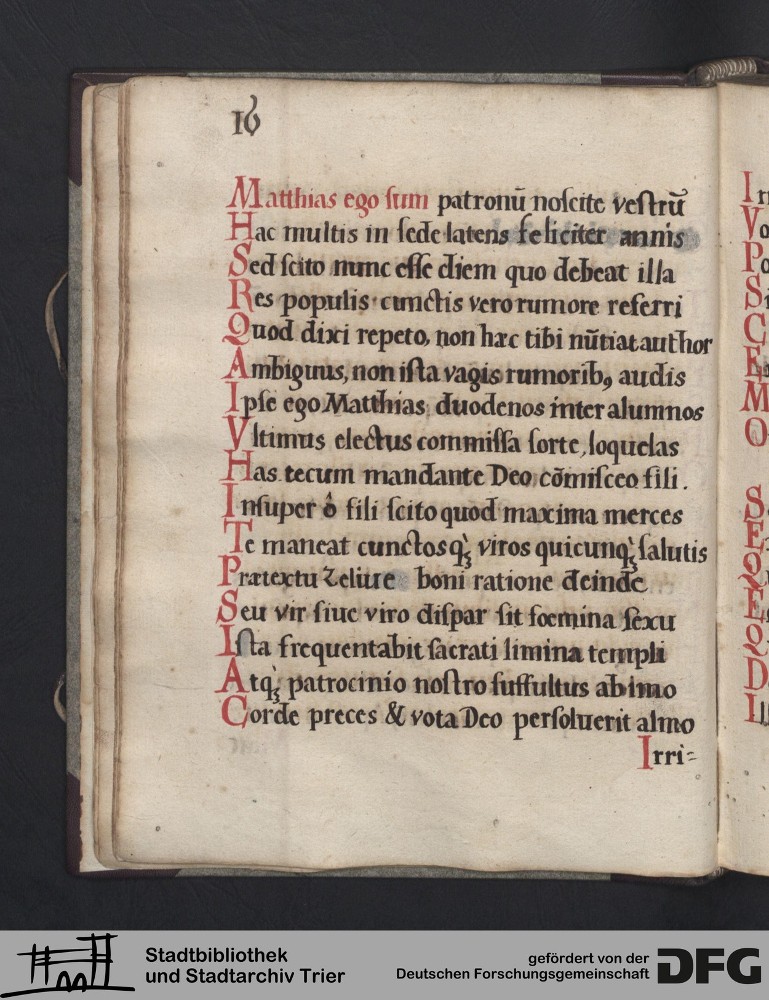 16
Matthias ego sum patronū noscite vestrū
Hac multis in sede latens feliciter annis
Sed scito nunc esse diem quo debeat illa
Res populis cunctis vero rumore referri
Quod dixi repeto, non hæc tibi nūtiat author
Ambiguus, non ista vagis rumorib9 audis
Ipse ego Matthias duodenos inter alumnos
Vltimus electus commissa sorte, loquelas
Has tecum mandante Deo cōmisceo fili.
Insuper ô fili scito quod maxima merces
Te maneat cunctosq́ꝫ viros quicunq́ꝫ salutis
Prætextu Zeliue boni ratione deinde
Seu vir siue viro dispar sit foemina sexu
Ista frequentabit sacrati limina templi
Atq́ꝫ patrocinio nostro suffultus ab imo
Corde preces & vota Deo persoluerit almo
Irri=
Stadtbibliothek
und Stadtarchiv Trier
gefördert von der
Deutschen Forschungsgemeinschaft
DFG